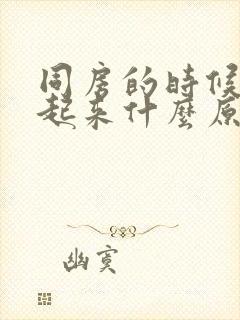 同房的時候
起來什麼原
幽寞